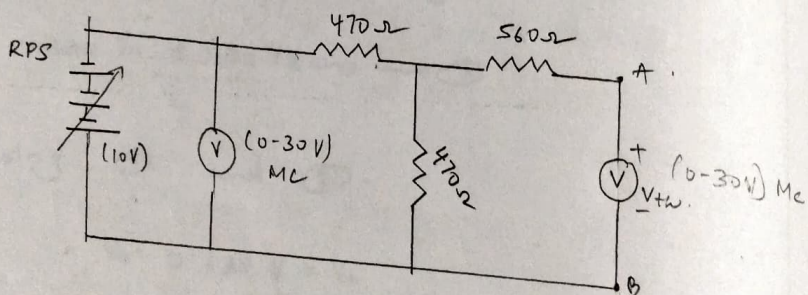 RPS
(10V)
V
(0-30V)
MC
470Ω
560Ω
470Ω
A
+
V
-
Vth.
(0-30V) Mc
B